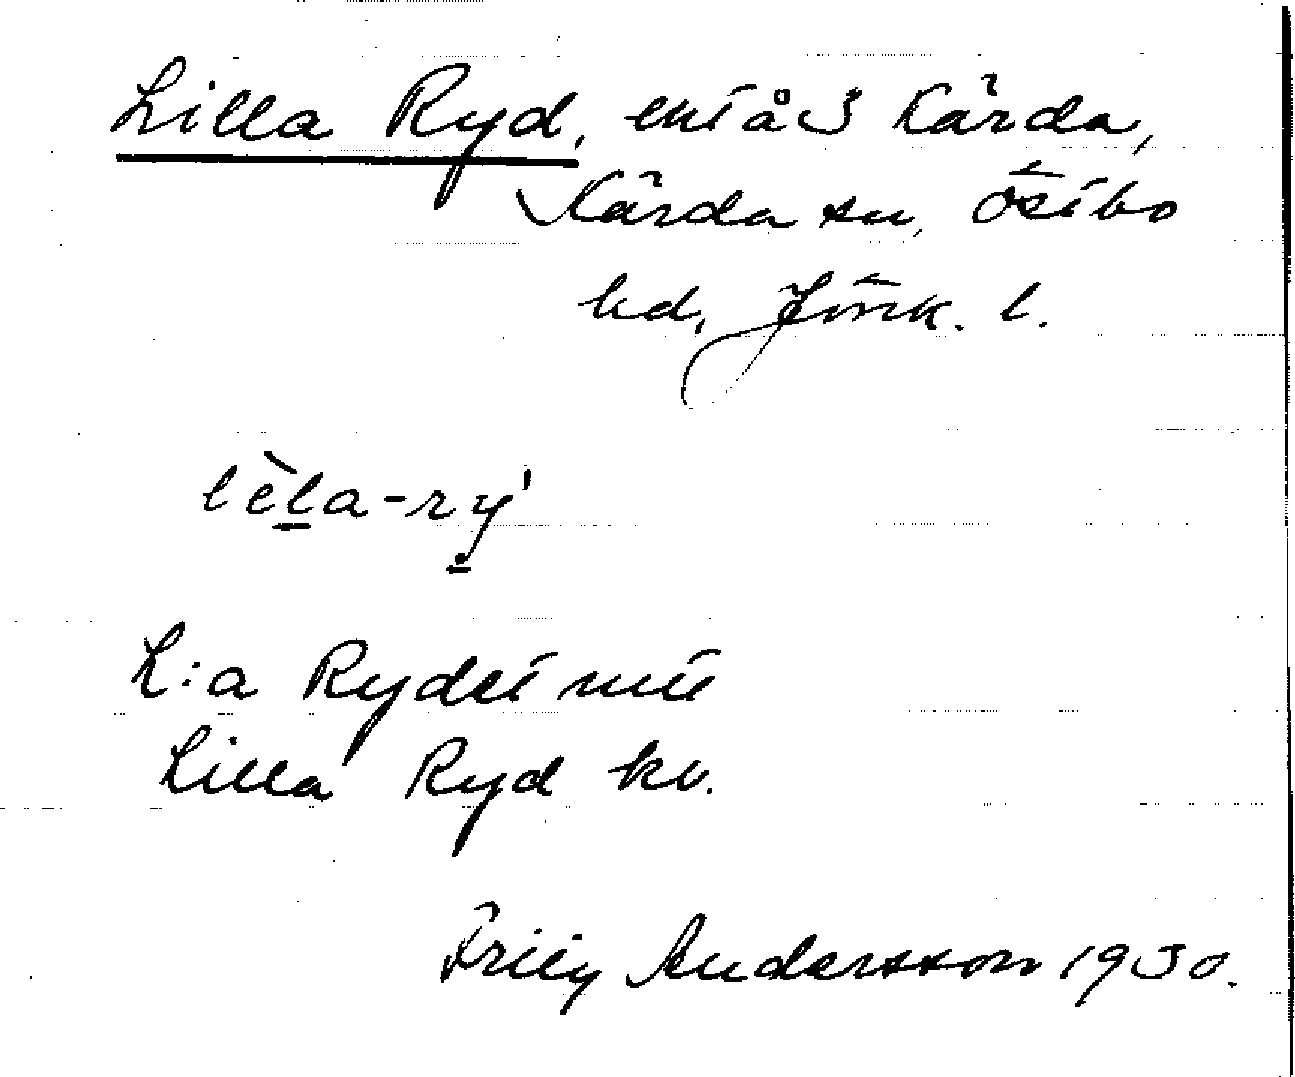 Lilla Ryd, ent å 3 Kärda,
Kärda sn, Östbo
hd, Jönk. l.
lèla-rý
L:a Rydet mtl
Lilla Ryd kv.
Andersson 1930.